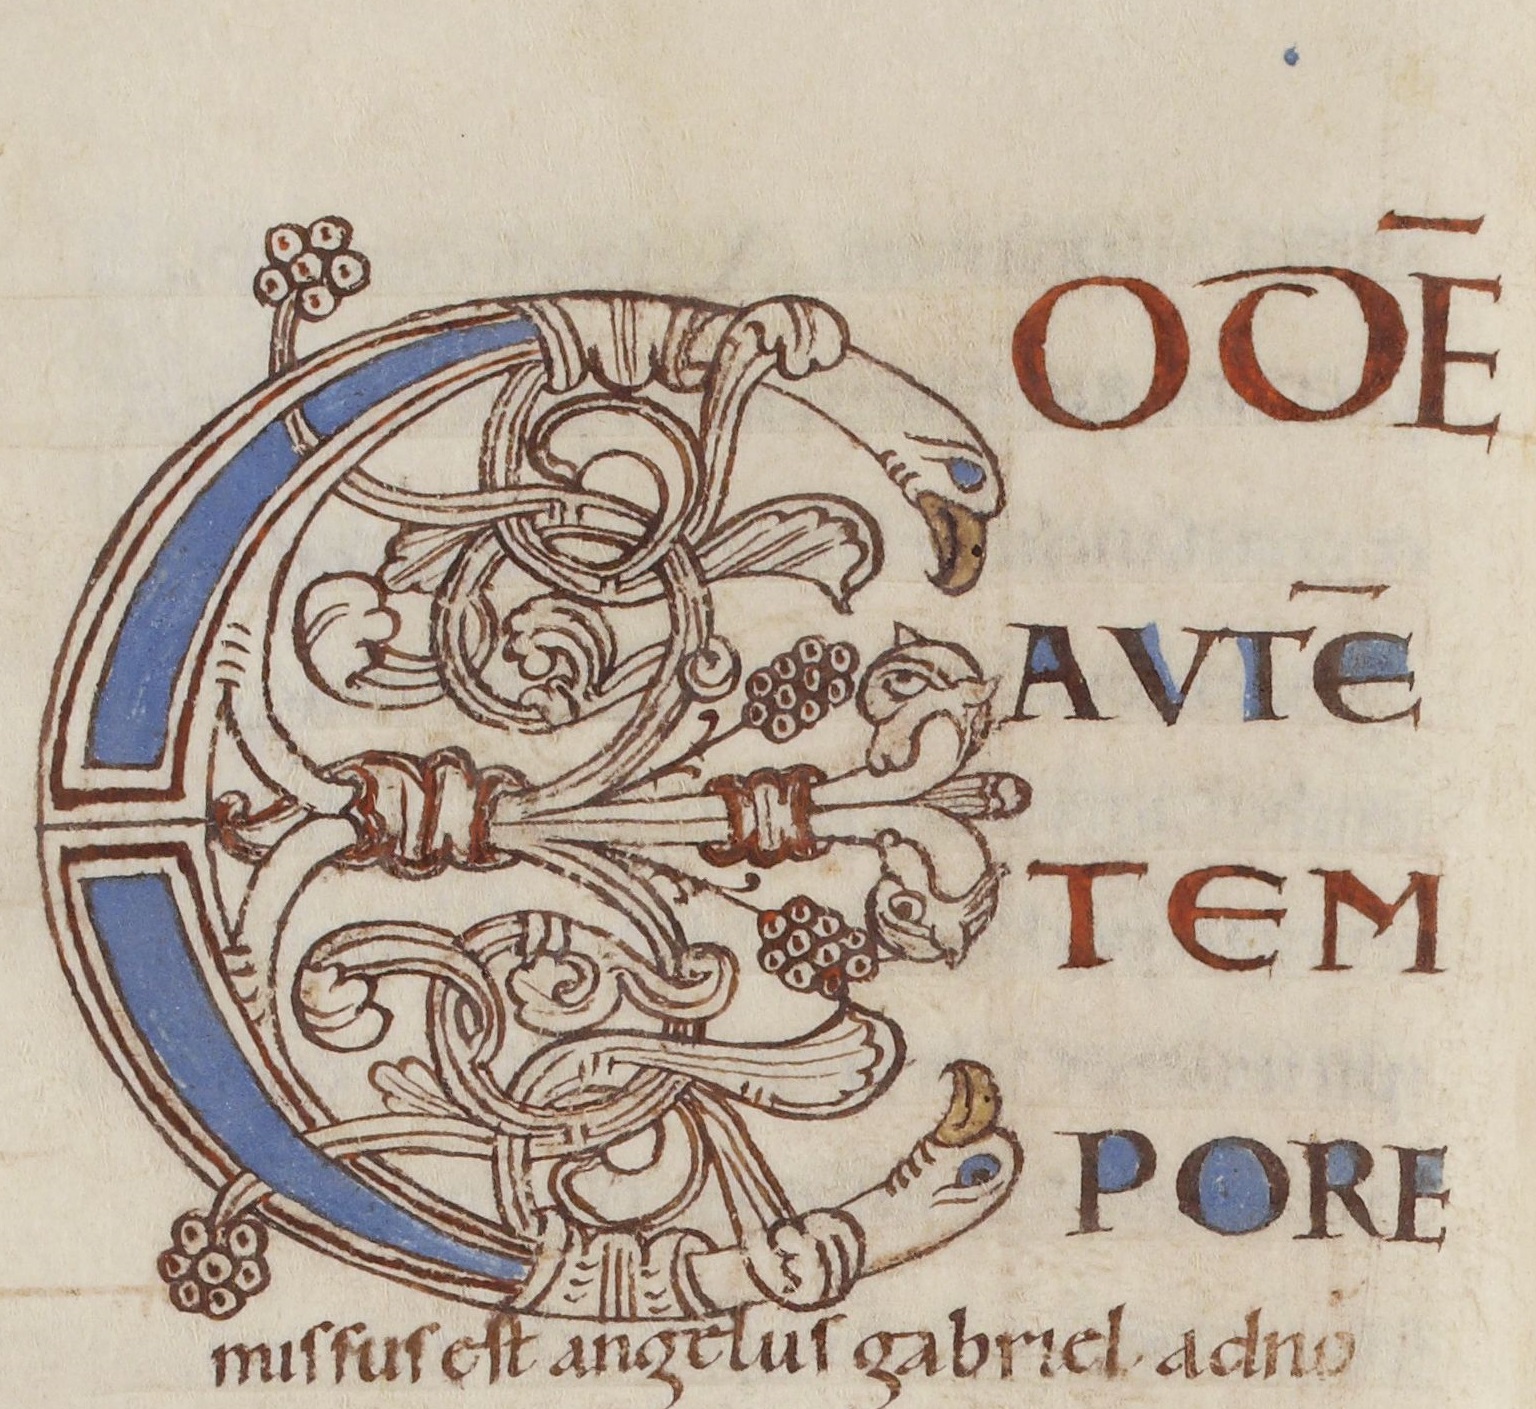 EODĒ
AVTĒ
TEM
PORE
missus est angelus gabriel ad no